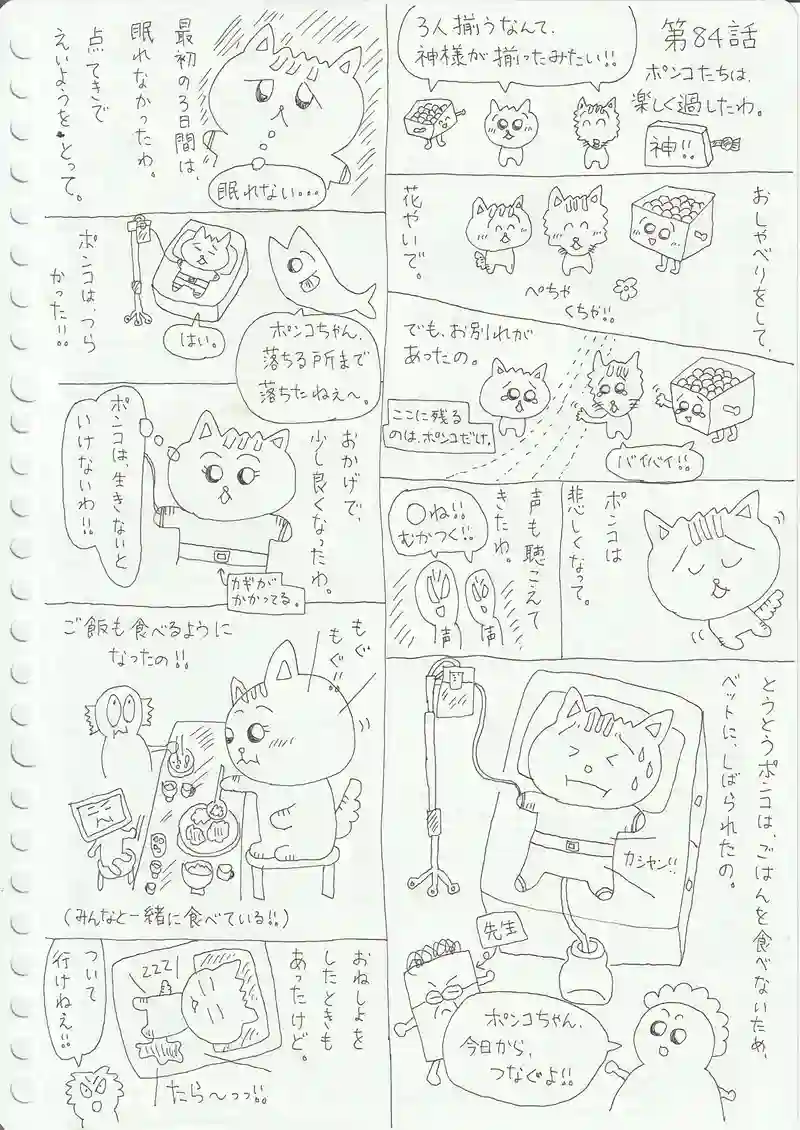 第84話
ポンコたちは、
楽しく過したわ。
3人揃うなんて、
神様が揃ったみたい!!
神!!
おしゃべりをして、
花やいで。
ぺちゃ
くちゃ!!
でも、お別れが
あったの。
ここに残る
のは、ポンコだけ。
バイバイ!!
ポンコは
悲しくなって。
声も聴こえて
きたわ。
〇ね!!
むかつく!!
声
声
とうとうポンコは、ごはんを食べないため、
ベットに、しばられたの。
カシャン!!
先生
ポンコちゃん、
今日から、
つなぐよ!!
最初の3日間は、
眠れなかったわ。
点てきで
えいようをとって。
眠れない...
ポンコちゃん、
落ちる所まで
落ちたねぇ〜。
はい。
ポンコは、つら
かった!!
おかげで、
少し良くなったわ。
ポンコは、生きないと
いけないわ!!
カギが
かかってる。
ご飯も食べるように
なったの!!
もぐ
もぐ!!
(みんなと一緒に食べている!!)
おねしょを
したときも
あったけど。
ZZZ!
たら〜っっ!!
ついて
行けねぇ!!